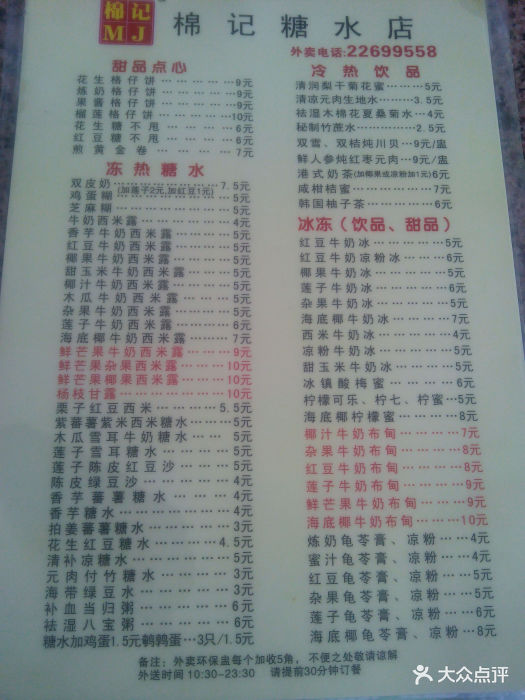 棉记
MJ
棉记糖水店
外卖电话:22699558
甜品点心
花生格仔饼………9元
炼奶格仔饼………9元
果酱格仔饼………9元
榴莲格仔饼………10元
花生糖不甩………6元
红豆糖不甩………6元
煎黄金卷………7元
冻热糖水
双皮奶………7.5元
(加莲子2元,加红豆1元)
鸡蛋糊………5元
芝麻糊………5元
牛奶西米露………4元
香芋牛奶西米露………5元
红豆牛奶西米露………5元
椰果牛奶西米露………5元
甜玉米牛奶西米露………5元
椰汁牛奶西米露………5元
木瓜牛奶西米露………5元
杂果牛奶西米露………5元
莲子牛奶西米露………6元
海底椰牛奶西米露………7元
鲜芒果牛奶西米露………9元
鲜芒果杂果西米露………10元
鲜芒果椰果西米露………10元
杨枝甘露………10元
栗子红豆西米………5.5元
紫蕃薯紫米西米糖水……5元
木瓜雪耳牛奶糖水……5元
莲子雪耳糖水………5元
莲子陈皮红豆沙………5元
陈皮绿豆沙………4元
香芋蕃薯糖水………4元
香芋糖水………4元
拍姜蕃薯糖水………3元
花生红豆糖水………4.5元
清补凉糖水………5元
元肉付竹糖水………3元
海带绿豆水………3元
补血当归粥………6元
祛湿八宝粥………6元
糖水加鸡蛋1.5元鹌鹑蛋…3只/1.5元
冷热饮品
清润梨干菊花蜜………5元
清凉元肉生地水………3.5元
祛湿木棉花夏桑菊水…4元
秘制竹蔗水………2.5元
双雪、双桔炖川贝…9元/盅
鲜人参炖红枣元肉…9元/盅
港式奶茶(加椰果或凉粉加1元)6元
咸柑桔蜜………7元
韩国柚子茶………6元
冰冻(饮品、甜品)
红豆牛奶冰………5元
红豆牛奶凉粉冰………6元
椰果牛奶冰………5元
莲子牛奶冰………6元
杂果牛奶冰………5元
海底椰牛奶冰………7元
西米牛奶冰………4元
凉粉牛奶冰………5元
甜玉米牛奶冰………5元
冰镇酸梅蜜………6元
柠檬可乐、柠七、柠蜜…5元
海底椰柠檬蜜………8元
椰汁牛奶布甸………7元
杂果牛奶布甸………8元
红豆牛奶布甸………8元
莲子牛奶布甸………9元
鲜芒果牛奶布甸………9元
海底椰牛奶布甸………10元
炼奶龟苓膏、凉粉…4元
蜜汁龟苓膏、凉粉…4元
红豆龟苓膏、凉粉…5元
杂果龟苓膏、凉粉…5元
莲子龟苓膏、凉粉…6元
海底椰龟苓膏、凉粉…8元
备注：外卖环保盅每个加收5角，不便之处敬请谅解
外送时间10:30-23:30 请提前30分钟订餐
大众点评